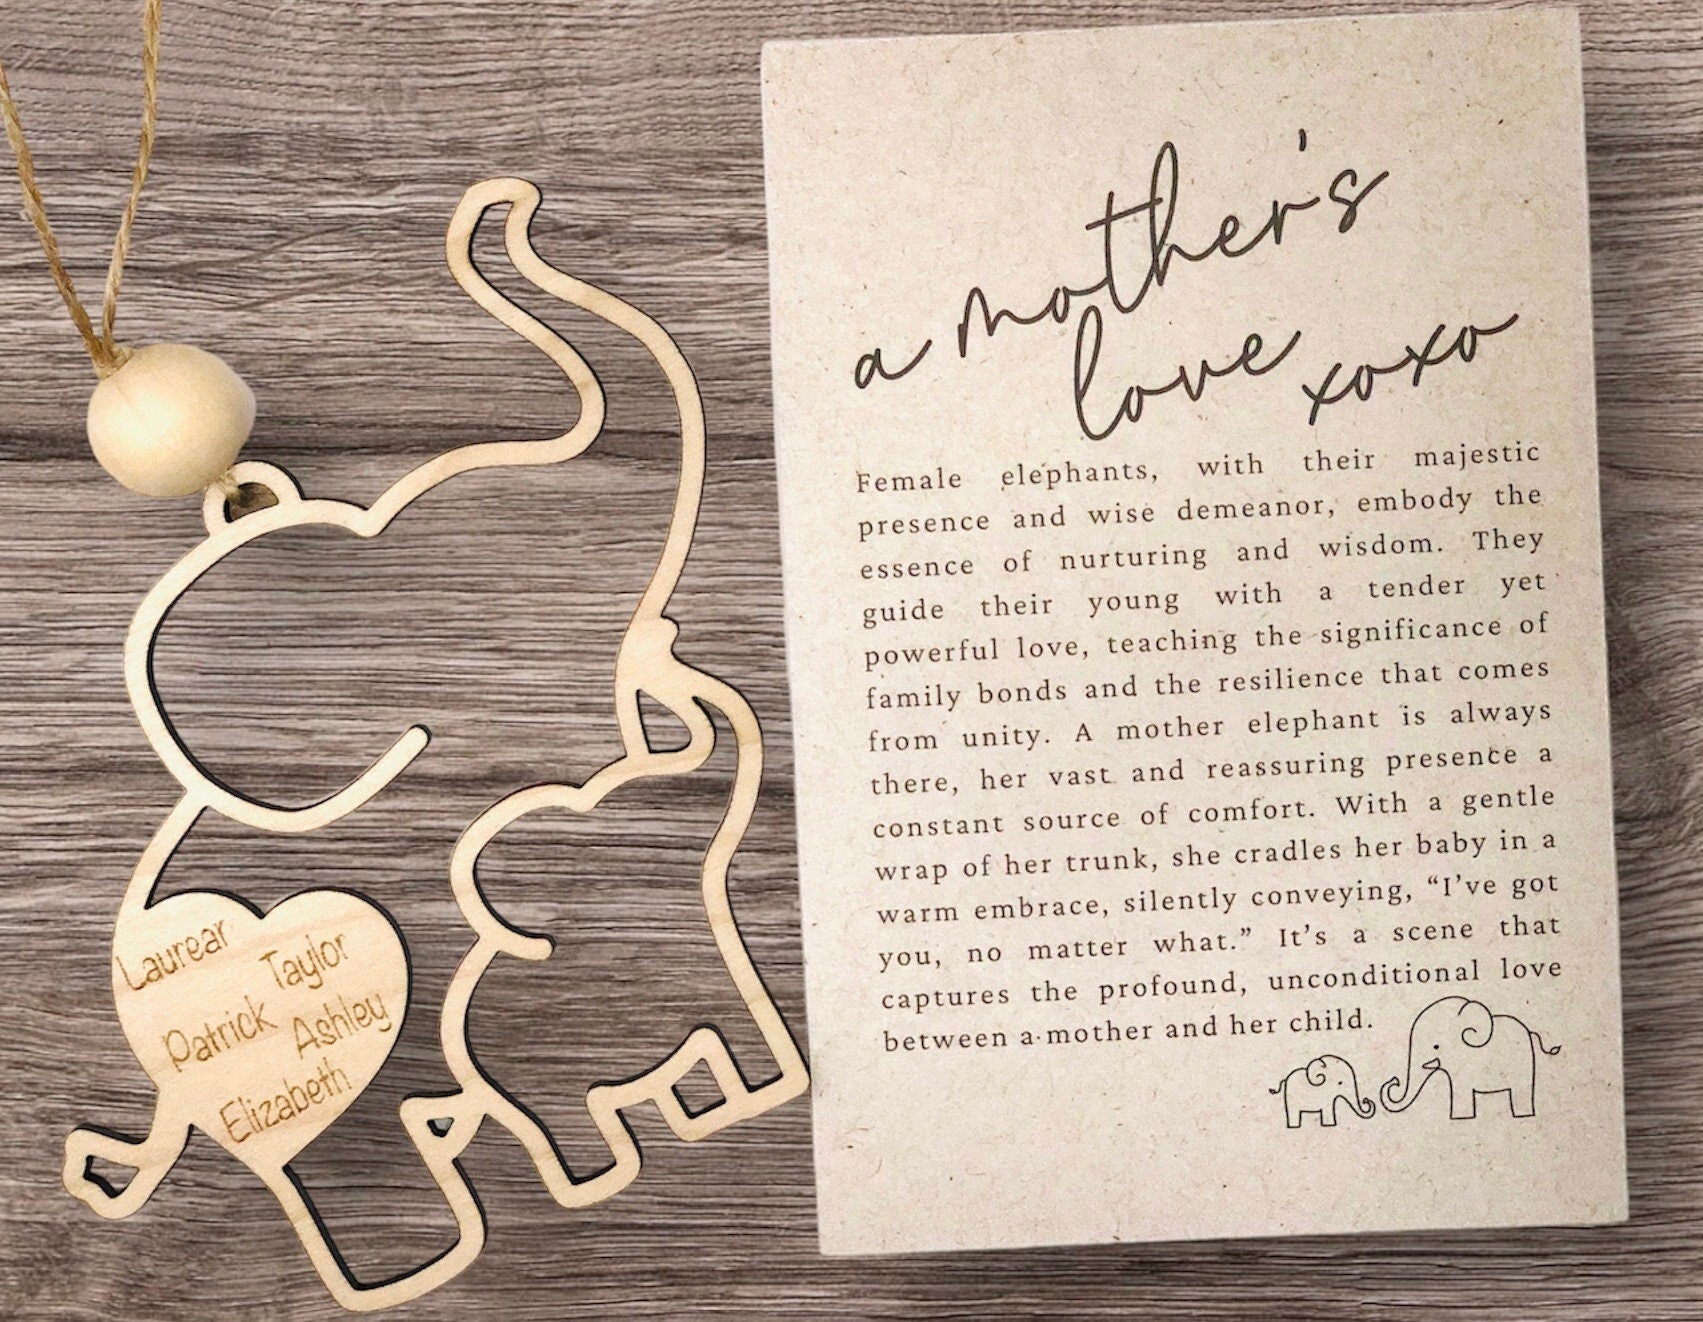 Laurear
Taylor
Patrick
Ashley
Elizabeth
a mother's
love xoxo
Female elephants, with their majestic
presence and wise demeanor, embody the
essence of nurturing and wisdom. They
guide their young with a tender yet
powerful love, teaching the significance of
family bonds and the resilience that comes
from unity. A mother elephant is always
there, her vast and reassuring presence a
constant source of comfort. With a gentle
wrap of her trunk, she cradles her baby in a
warm embrace, silently conveying, “I’ve got
you, no matter what.” It’s a scene that
captures the profound, unconditional love
between a mother and her child.